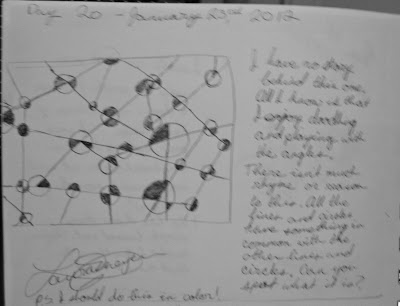 Day 20 - January 23rd 2012
I have no story
behind this one.
All I know is that
I enjoy doodling
and playing with
the angles.
There isn't much
rhyme or reason
to this. All the
lines and circles
have something in
common with the
other lines and
circles. Can you
spot what it is?
PS I should do this in color!